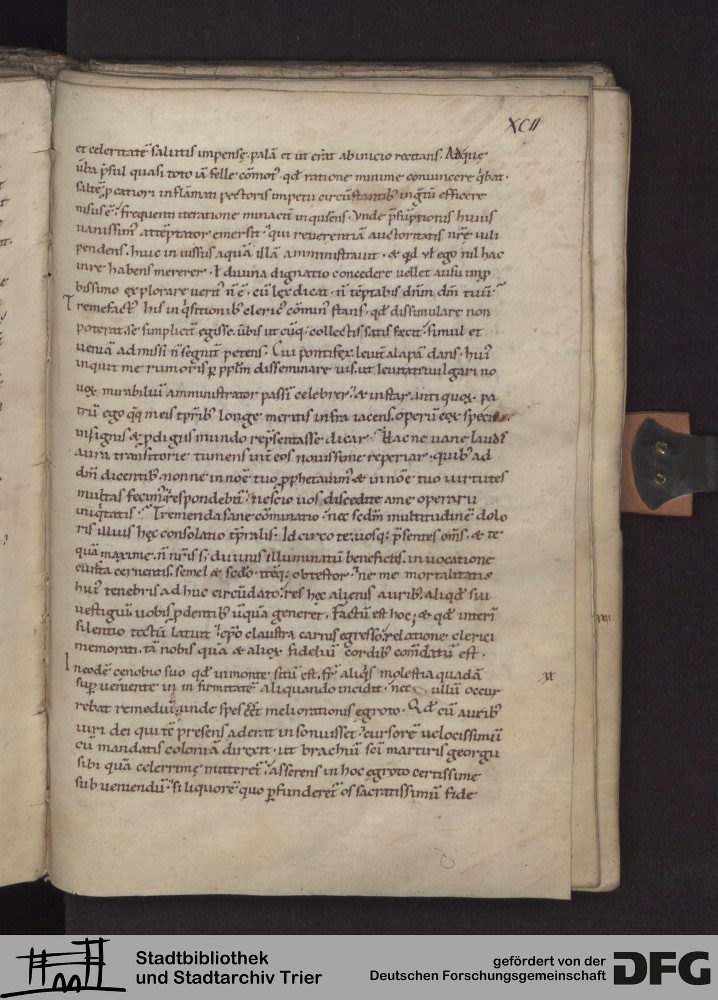 XCII
et celeritatē salutis impensę. palā et ut erat ab inicio recitans. Adquę
ūba p̄sul quasi toto iā felle cōmot᷒. qd̄ ratione minime convincere q̄bat.
saltē pectoris impetu efficere
nisus ē. frequenti iteratione minacit̄ inquisens. Unde p̄sūptionis huius
uanissim᷒ attēptator emersit. qui reuerentiā auctoritatis nr̄e uili
pendens. huic iniussus aquā illā amministrauit. & qd̄ ego nil hac
inre habens mererer. ł diuina dignatio concedere uellet ausu imp
bissimo explorare uerū ñ ē. cū lex dicat. ñ tēptabis dn̄m dm̄ tuū.
Tremefact᷒ his inq̄sitionib᷒ cleric᷒ cōmun᷒ stans. qd̄ dissimulare non
poterat. se simplicit̄ egisse. ūbis ut cūq̨ collectis satis fecit. simul et
ueniā admissi ñ segnit̄ petens. Cui pontifex leuit̄ alapā dans. hui᷒
inquit me rumoris p̱ pp̄lm disseminare uis. ut leuitate uulgari no
uox mirabiliū amministrator passī celebrer. & instar antiquoꝝ pa
trū ego q̄q̨ meis tp̄rib᷒ longe meritis infra iacens. operū eoꝝ speci
insignis & p̱digus mundo rep̄sentasse dicar. Hac ne uane laudis
aura transitorie tumens int̄ eos nouissime reperiar. quib᷒ ad
dm̄ dicentib᷒. nonne in nōe tuo p̱phetauim᷒ & in nōe tuo uirtutes
multas fecim᷒. respondebit᷒. nescio uos discedite ame operarii
iniq̄tatis. Tremenda sane cōminatio. nec sed̄m multitudinē dolo
ris illius hęc consolatio tp̄ralis. Idcirco te. uosq̨ p̄sentes om̄s. & te
quā maxime. diuinis illuminatū beneficiis. inuocatione
cernentis. semel & sc̄do. obtestor. ne me mortalitatis
hui᷒ tenebris adhuc circūdato. res hęc alienis aurib᷒ aliqd̄ sui
uestigiū uobis p̱dentib᷒ ūquā generet. Factū est hoc. & qd̄ interī
silentio tectū latuit. claustra carnis egresso. relatione clerici
memorati. tā nobis quā & alioꝝ fideliū cordib᷒ com̄datū est.
In eodē cenobio suo qd̄ in monte sitū est. fr̄ aliq̄s molestia quadā
sup̱ueniente in infirmitatē aliquando incidit. nec ullū occur
rebat remediū. unde spes eēt meliorationis egroto. Qd̄ cū aurib᷒
uiri dei qui tc̄ presens aderat insonuisset. cursorē uelocissimū
cū mandatis coloniā direxit. ut brachiū sci martiris georgii
sibi quā celerrime mitteret᷒. asserens in hoc egroto certissime
subueniendū. si liquore quo p̱funderet᷒ os sacratissimū fide
Stadtbibliothek
und Stadtarchiv Trier
gefördert von der
Deutschen Forschungsgemeinschaft
DFG